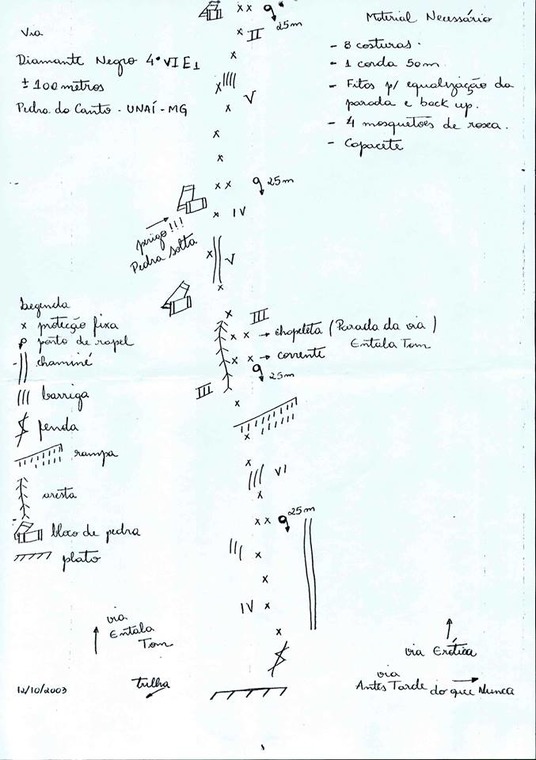 Via
Diamante Negro 4° VI E1
± 100 metros
Pedra do Canto - UNAÍ - MG
Material Necessário
- 8 costuras.
- 1 corda 50m.
- Fitas p/ equalização da
parada e back up.
- 4 mosquetões de rosca.
- Capacete
x x 25m
x II
x
x V
x
x
x
x x 25m
x IV
perigo!!!
Pedra solta
x V
x
x III
x x → chopleta (Parada da via)
Entala Tom
x x → corrente
25m
III
x
x
x
VI
x
x x 25m
x
x
IV x
x
Legenda
x proteção fixa
ponto de rapel
chaminé
barriga
fenda
rampa
aresta
bloco de pedra
platô
via
Entala
Tom
trilha
via Erótica
via
Antes Tarde do que Nunca
12/10/2003